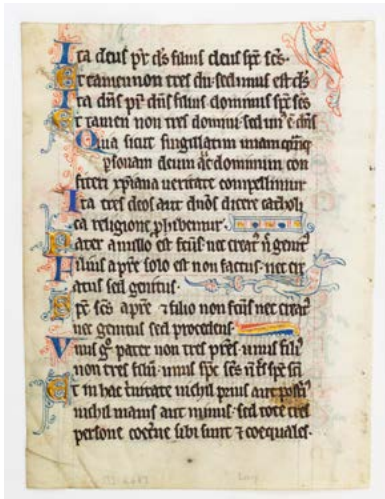 Ita deus pr ds filius deus spc scs.
Et tamen non tres dii sed unus est ds
Ita dns pr dns filius dominus spc scs
Et tamen non tres domini sed un e dns
Quia sicut singillatim unamqmq
psonam deum ac dominum con
fiteri xpiana veritate compellimur
Ita tres deos aut dnos dicere catholi
ca religione phibemur
Pater a nullo est fcus nec creat n genit
Filius a pre solo est non factus nec cre
atus sed genitus
Sps scs a pre et filio non fcus nec creat
nec genitus sed procedens
Unus go pater non tres pres unus fili
non tres filii unus spc scs n tres spc sci
Et in hac trinitate nichil prius aut posti
nichil maius aut minus sed tote tres
persone coetne sibi sunt et coequales.